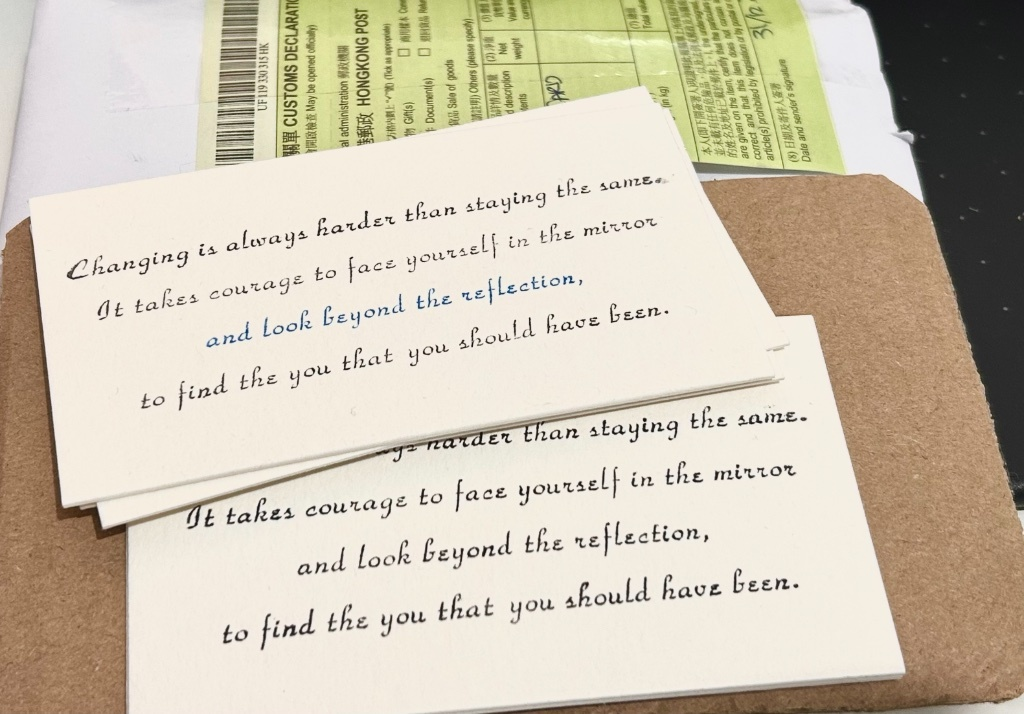 UF 119 330 315 HK
關單 CUSTOMS DECLARATI
(May be opened officially)
al administration 郵政機關
郵政 HONGKONG POST
(Tick as appropriate)
Gift(s)
Document(s)
Sale of goods
Others (please specify)
(2) 淨重
Net
weight
description
(in kg)
are given on the item, certify that the
correct and that this item does not
article(s) prohibited by legislation or by postal o
(8) 日期及寄件人簽署
Date and sender's signature
31/12
Changing is always harder than staying the same.
It takes courage to face yourself in the mirror
and look beyond the reflection,
to find the you that you should have been.
harder than staying the same.
It takes courage to face yourself in the mirror
and look beyond the reflection,
to find the you that you should have been.